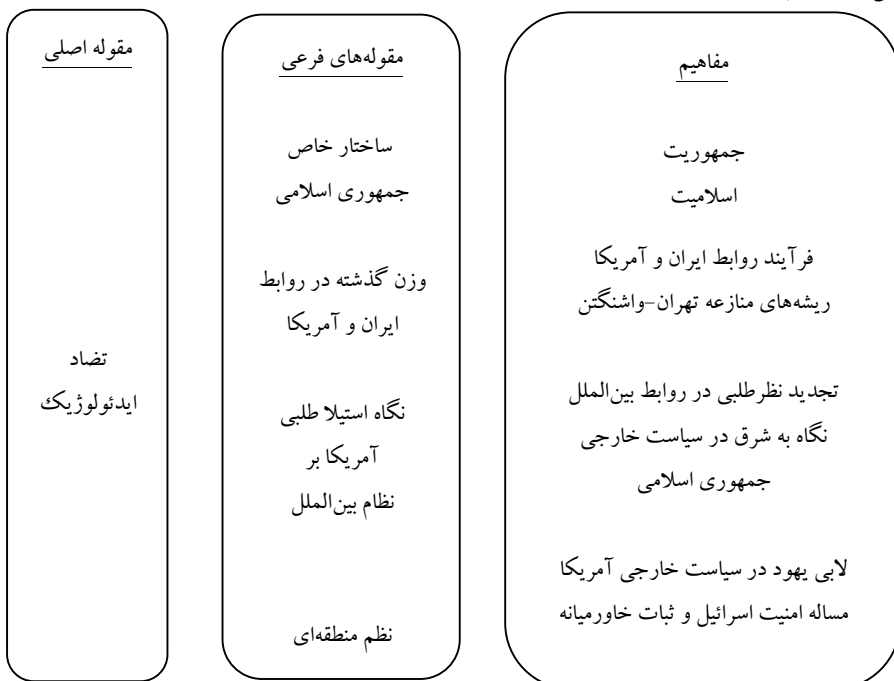 مفاهیم
جمهوریت
اسلامیت
فرآیند روابط ایران و آمریکا
ریشه‌های منازعه تهران–واشنگتن
تجدید نظرطلبی در روابط بین‌الملل
نگاه به شرق در سیاست خارجی
جمهوری اسلامی
لابی یهود در سیاست خارجی آمریکا
مساله امنیت اسرائیل و ثبات خاورمیانه
مقوله‌های فرعی
ساختار خاص
جمهوری اسلامی
وزن گذشته در روابط
ایران و آمریکا
نگاه استیلا طلبی
آمریکا بر
نظام بین‌الملل
نظم منطقه‌ای
مقوله اصلی
تضاد
ایدئولوژیک